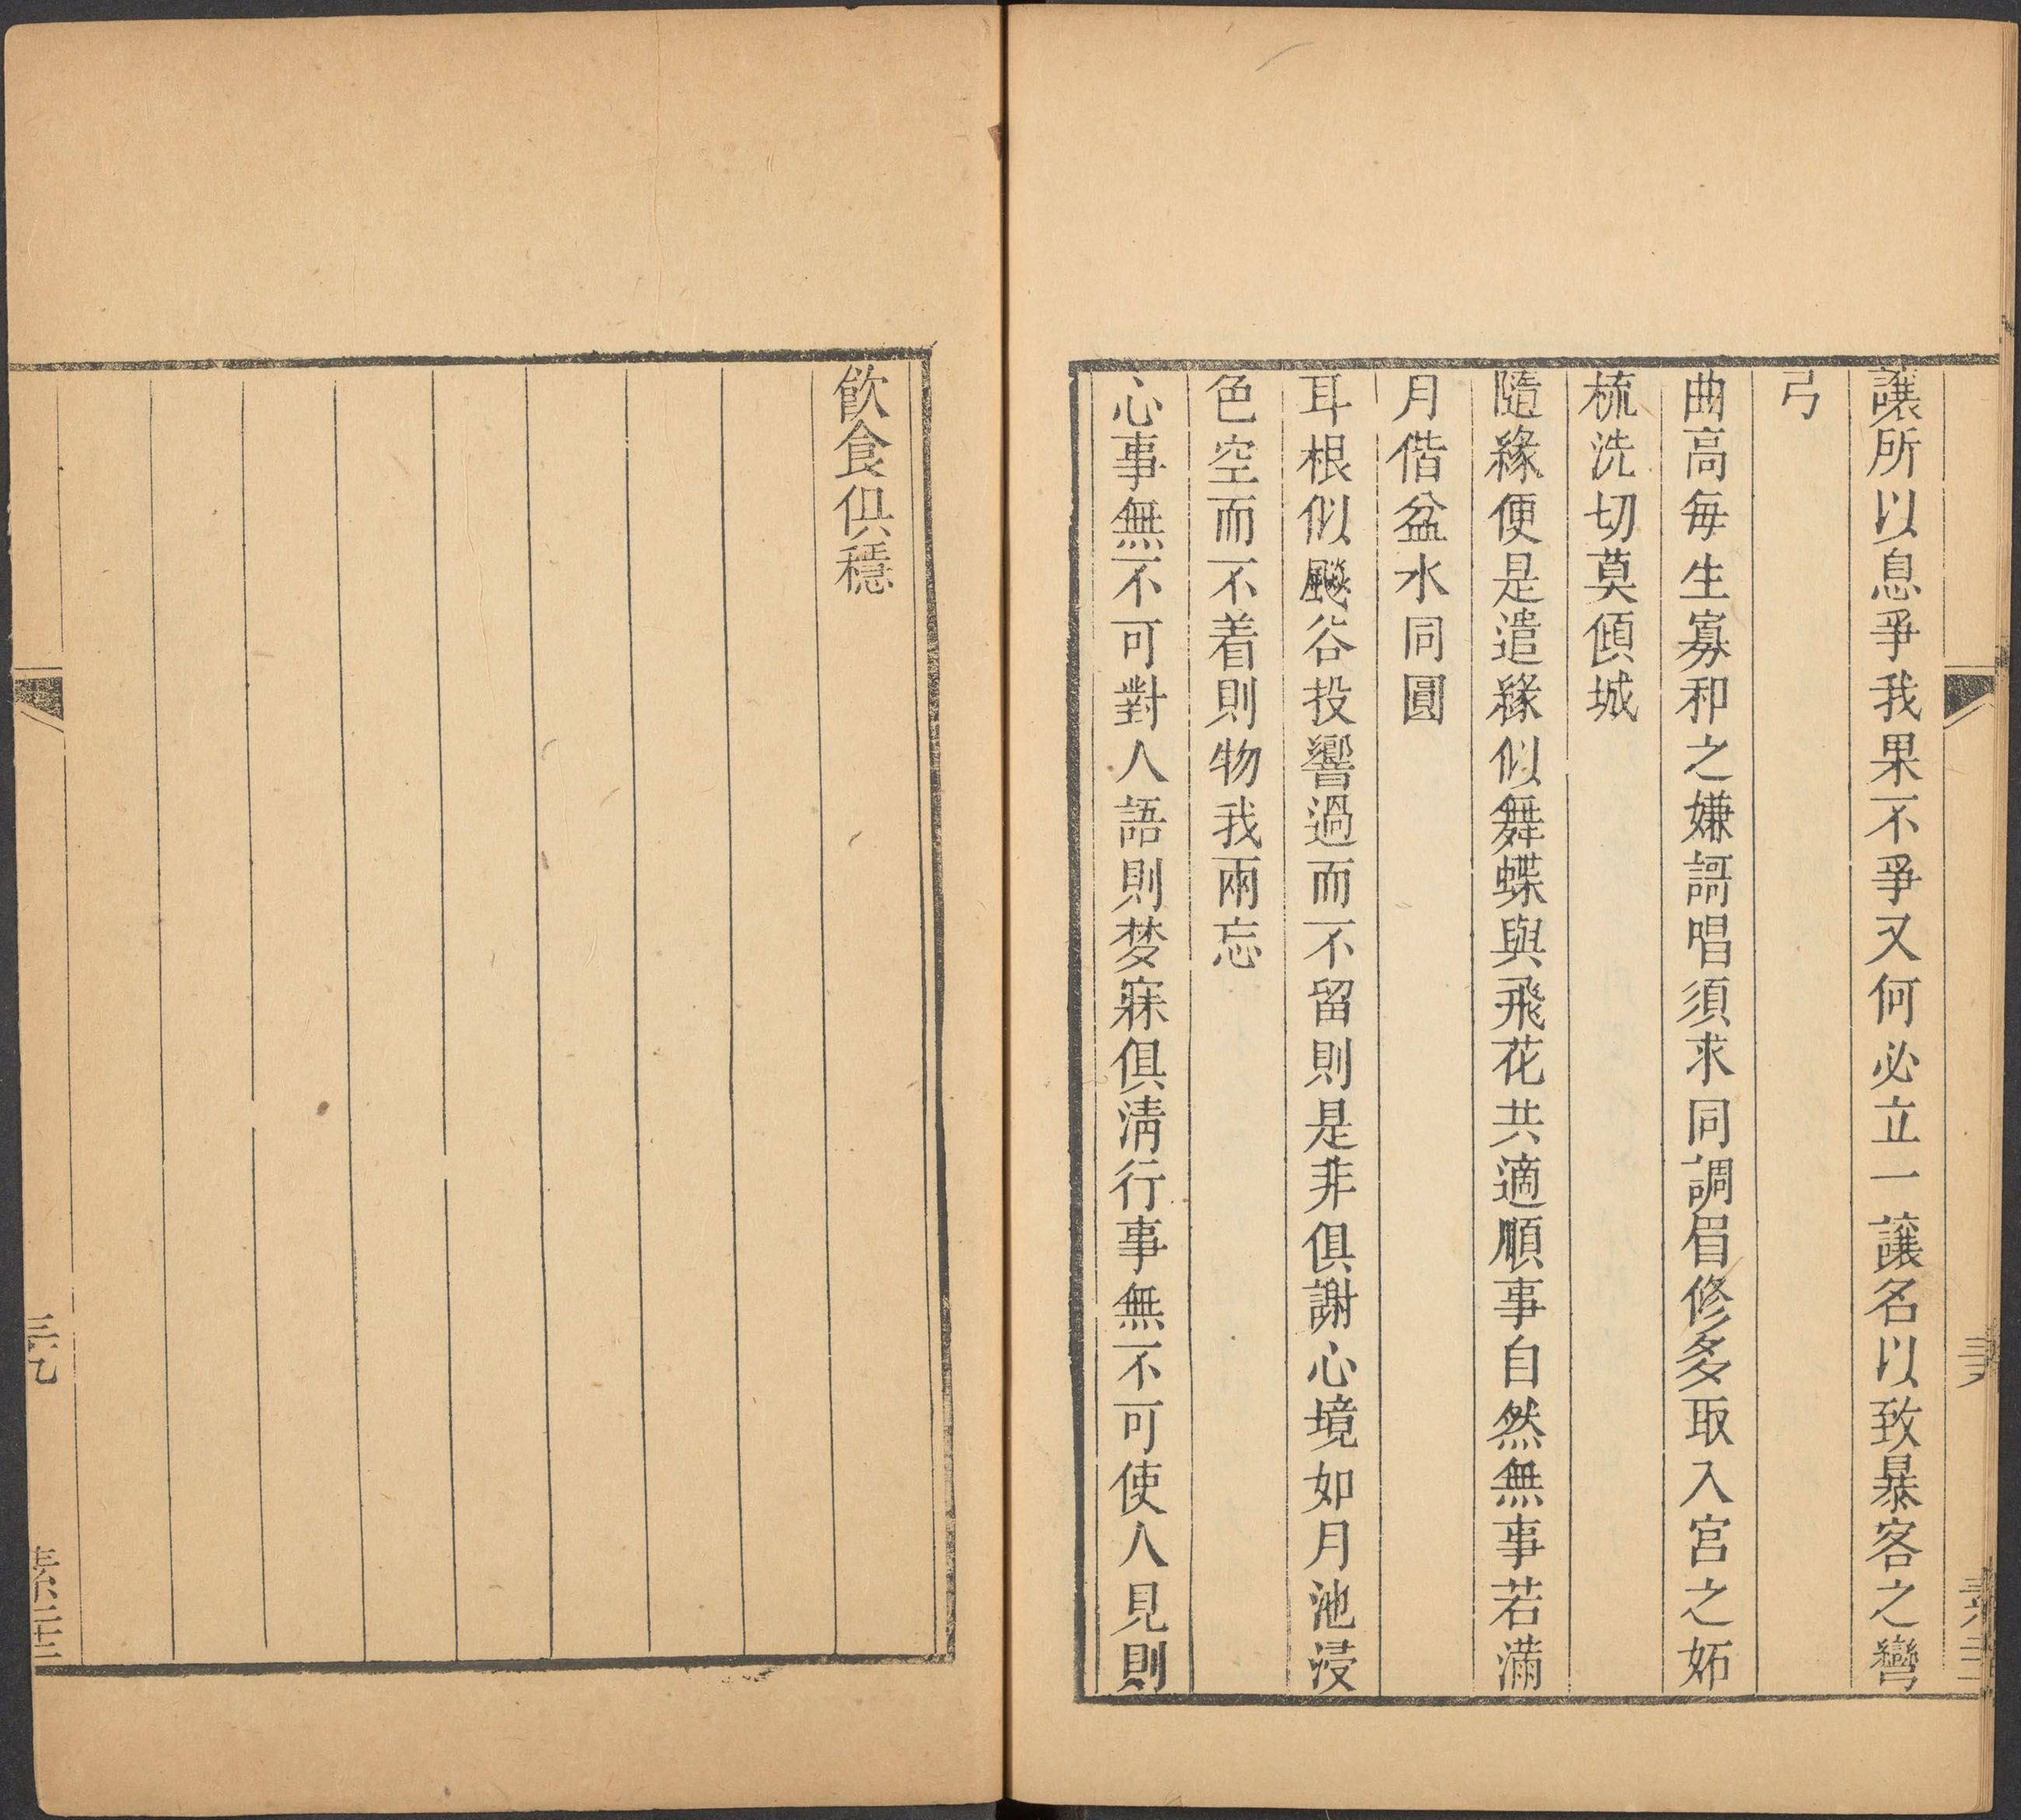 讓所以息爭我果不爭又何必立一讓名以致暴客之彎
弓
曲高每生寡和之嫌謌唱須求同調眉修多取入宮之妬
梳洗切莫傾城
隨緣便是遣緣似舞蝶與飛花共適順事自然無事若滿
月偕盆水同圓
耳根似飈谷投響過而不留則是非俱謝心境如月池浸
色空而不着則物我兩忘
心事無不可對人語則梦寐俱淸行事無不可使人見則
飲食俱穩